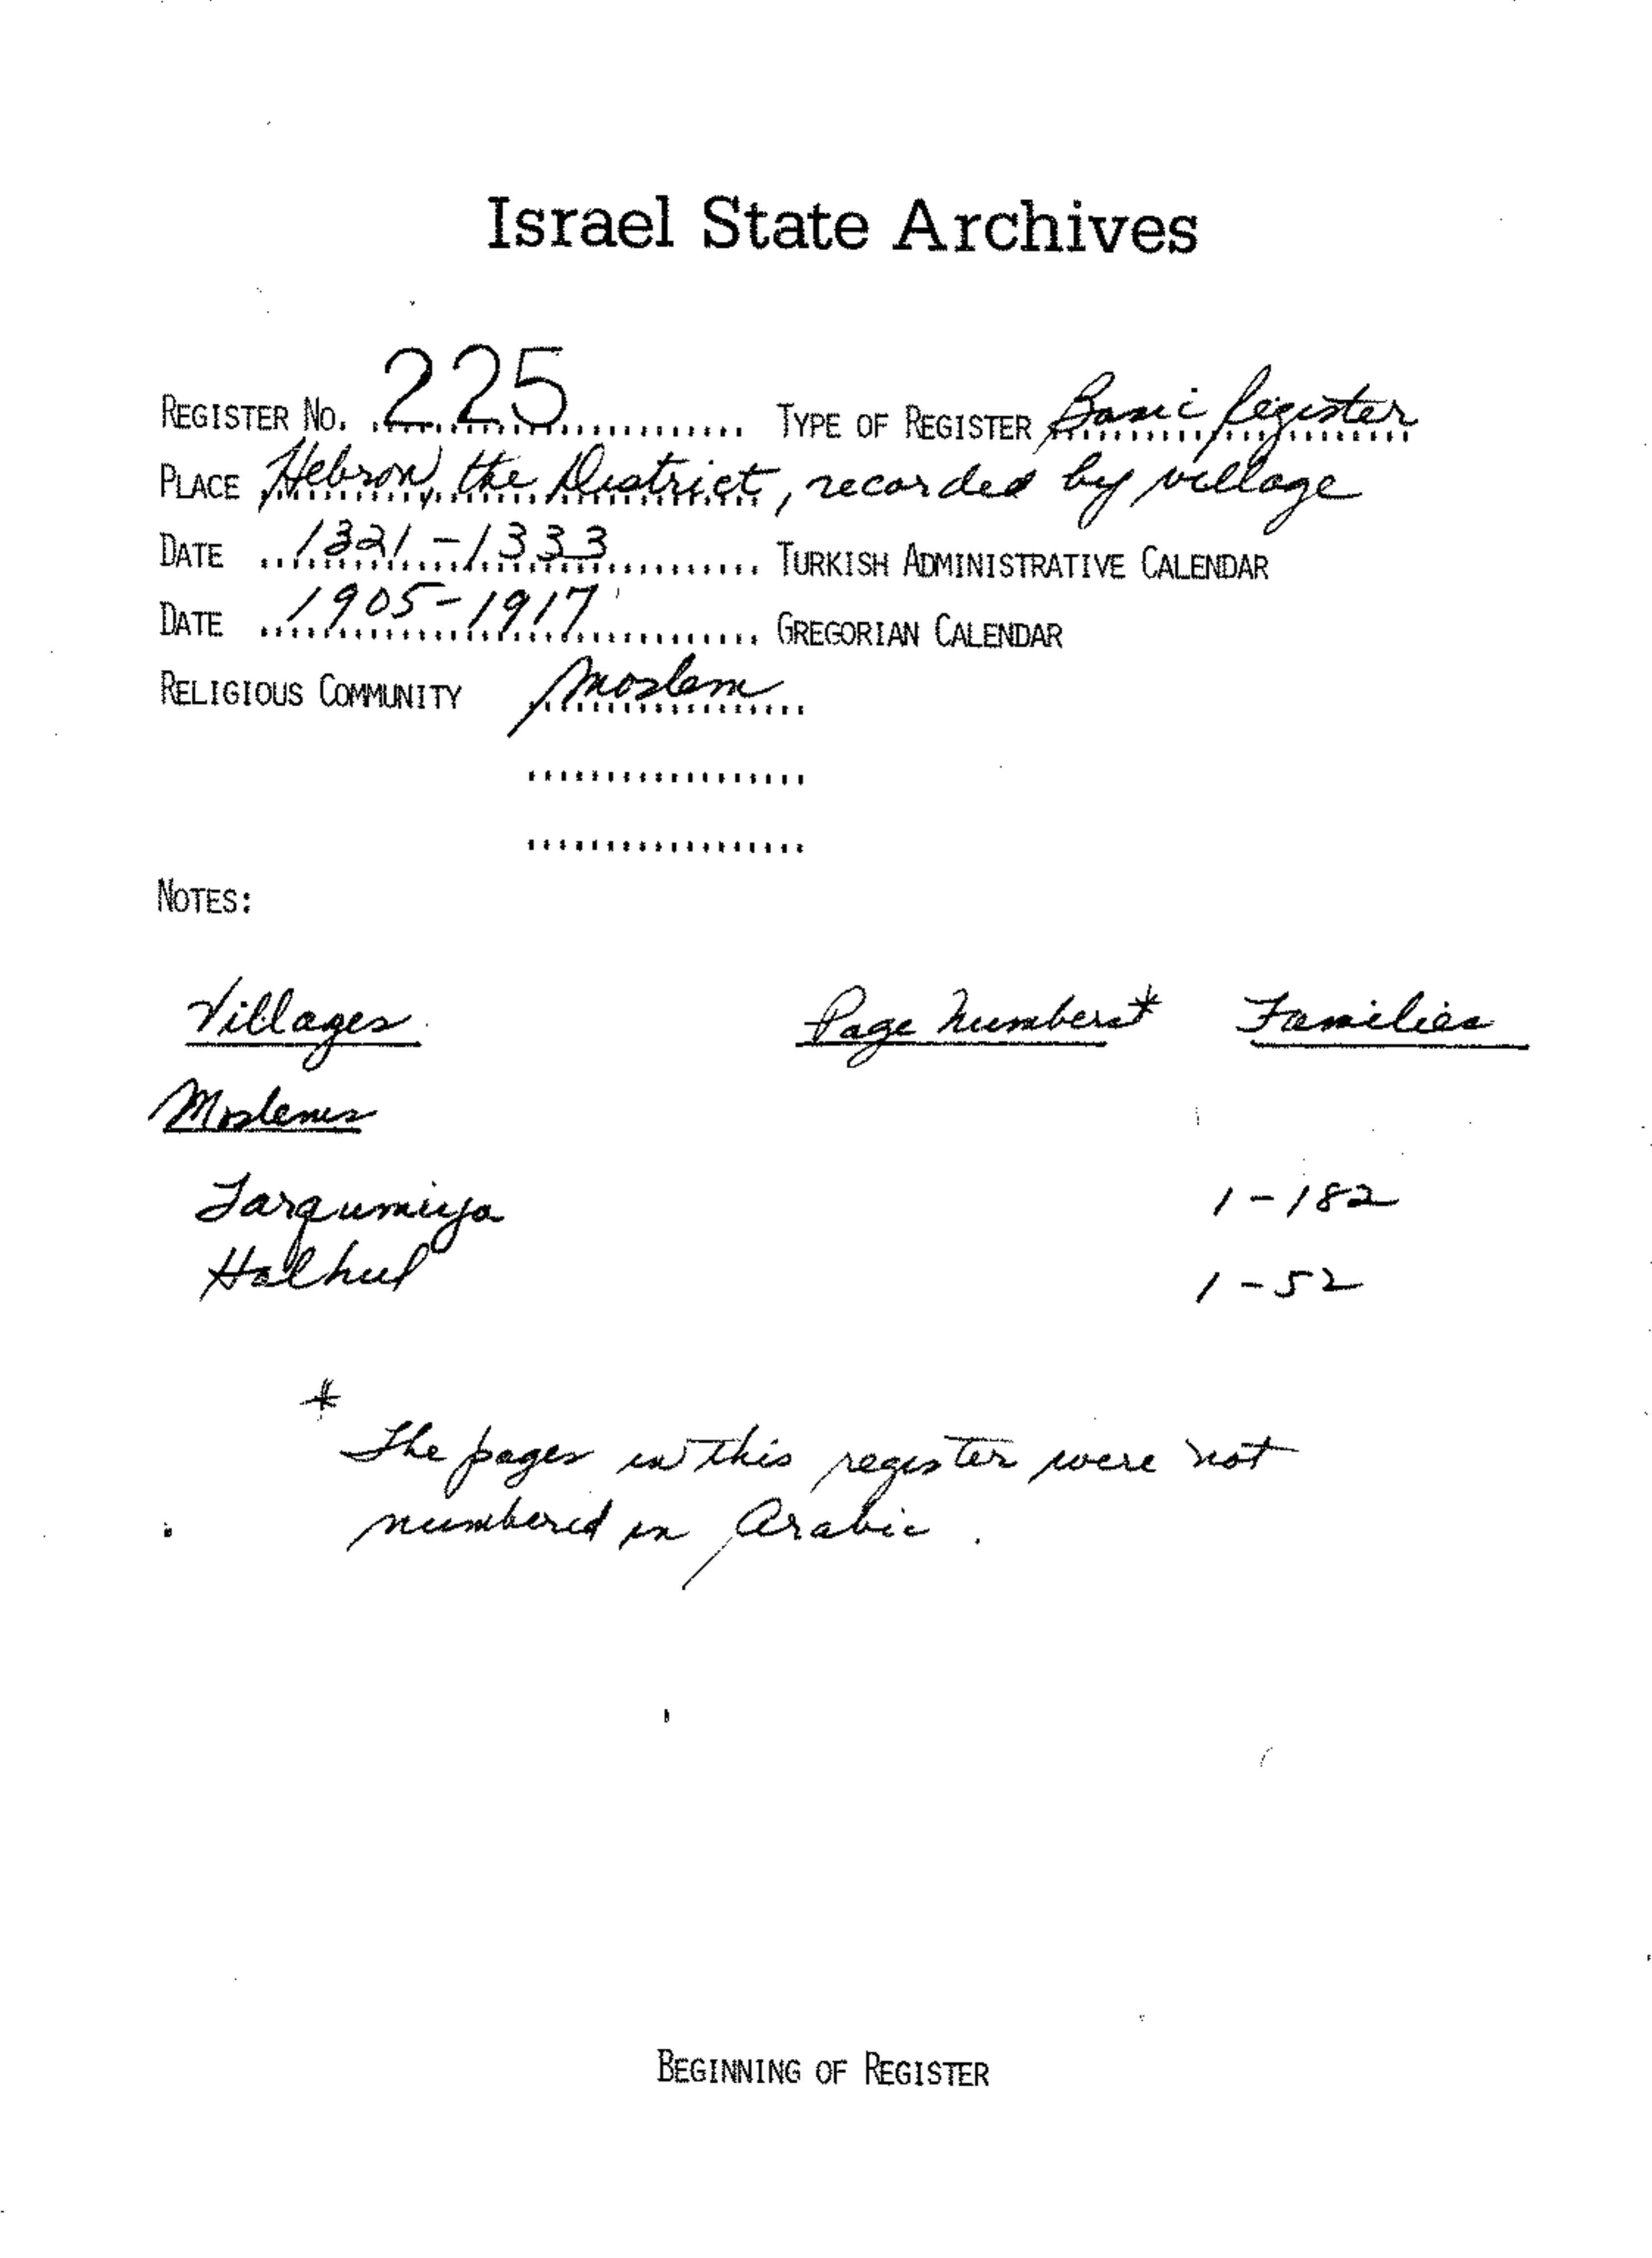 Israel State Archives
REGISTER NO. 225 TYPE OF REGISTER Basic Register
PLACE Hebron, the District, recorded by village
DATE 1321-1333 TURKISH ADMINISTRATIVE CALENDAR
DATE 1905-1917 GREGORIAN CALENDAR
RELIGIOUS COMMUNITY Moslem
NOTES:
Villages Page Numbers* Families
Moslems
Tarqumiya 1-182
Halhul 1-52
*
The pages in this register were not
numbered in Arabic.
BEGINNING OF REGISTER